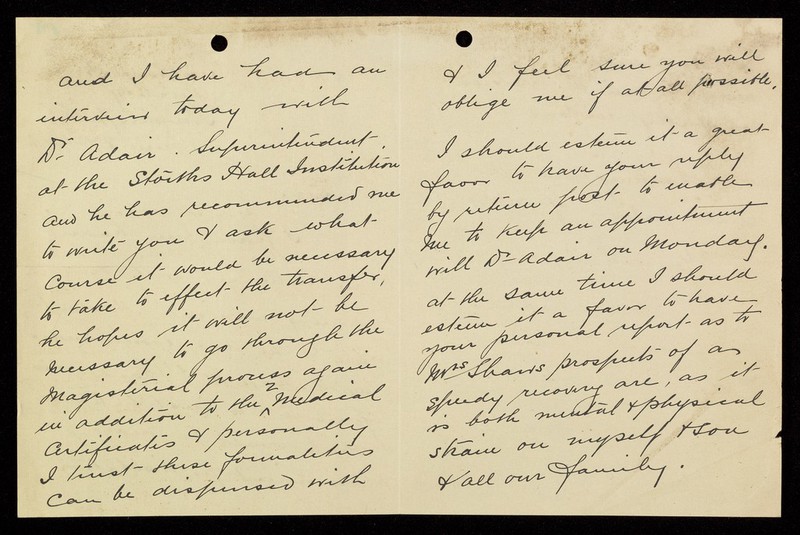 and I have had an
interview today with
Dr Adair. Superintendent.
at the Storths Hall Institution
and he has recommended me
to write you & ask what
course it would be necessary
to take to effect the transfer,
he hopes it will not be
necessary to go through the
Magisterial process again
in addition to the 2 Medical
Certificates & personally
I trust these formalities
can be dispensed with
& I feel sure you will
oblige me if at all possible.
I should esteem it a great
favor to have your reply
by return post to enable
me to keep an appointment
will Dr Adair on Monday.
at the same time I should
esteem it a favor to have
your personal report as to
Mrs Shaws prospects of a
speedy recovery are, as it
is both mental & physical
strain on myself & son
& all our family.